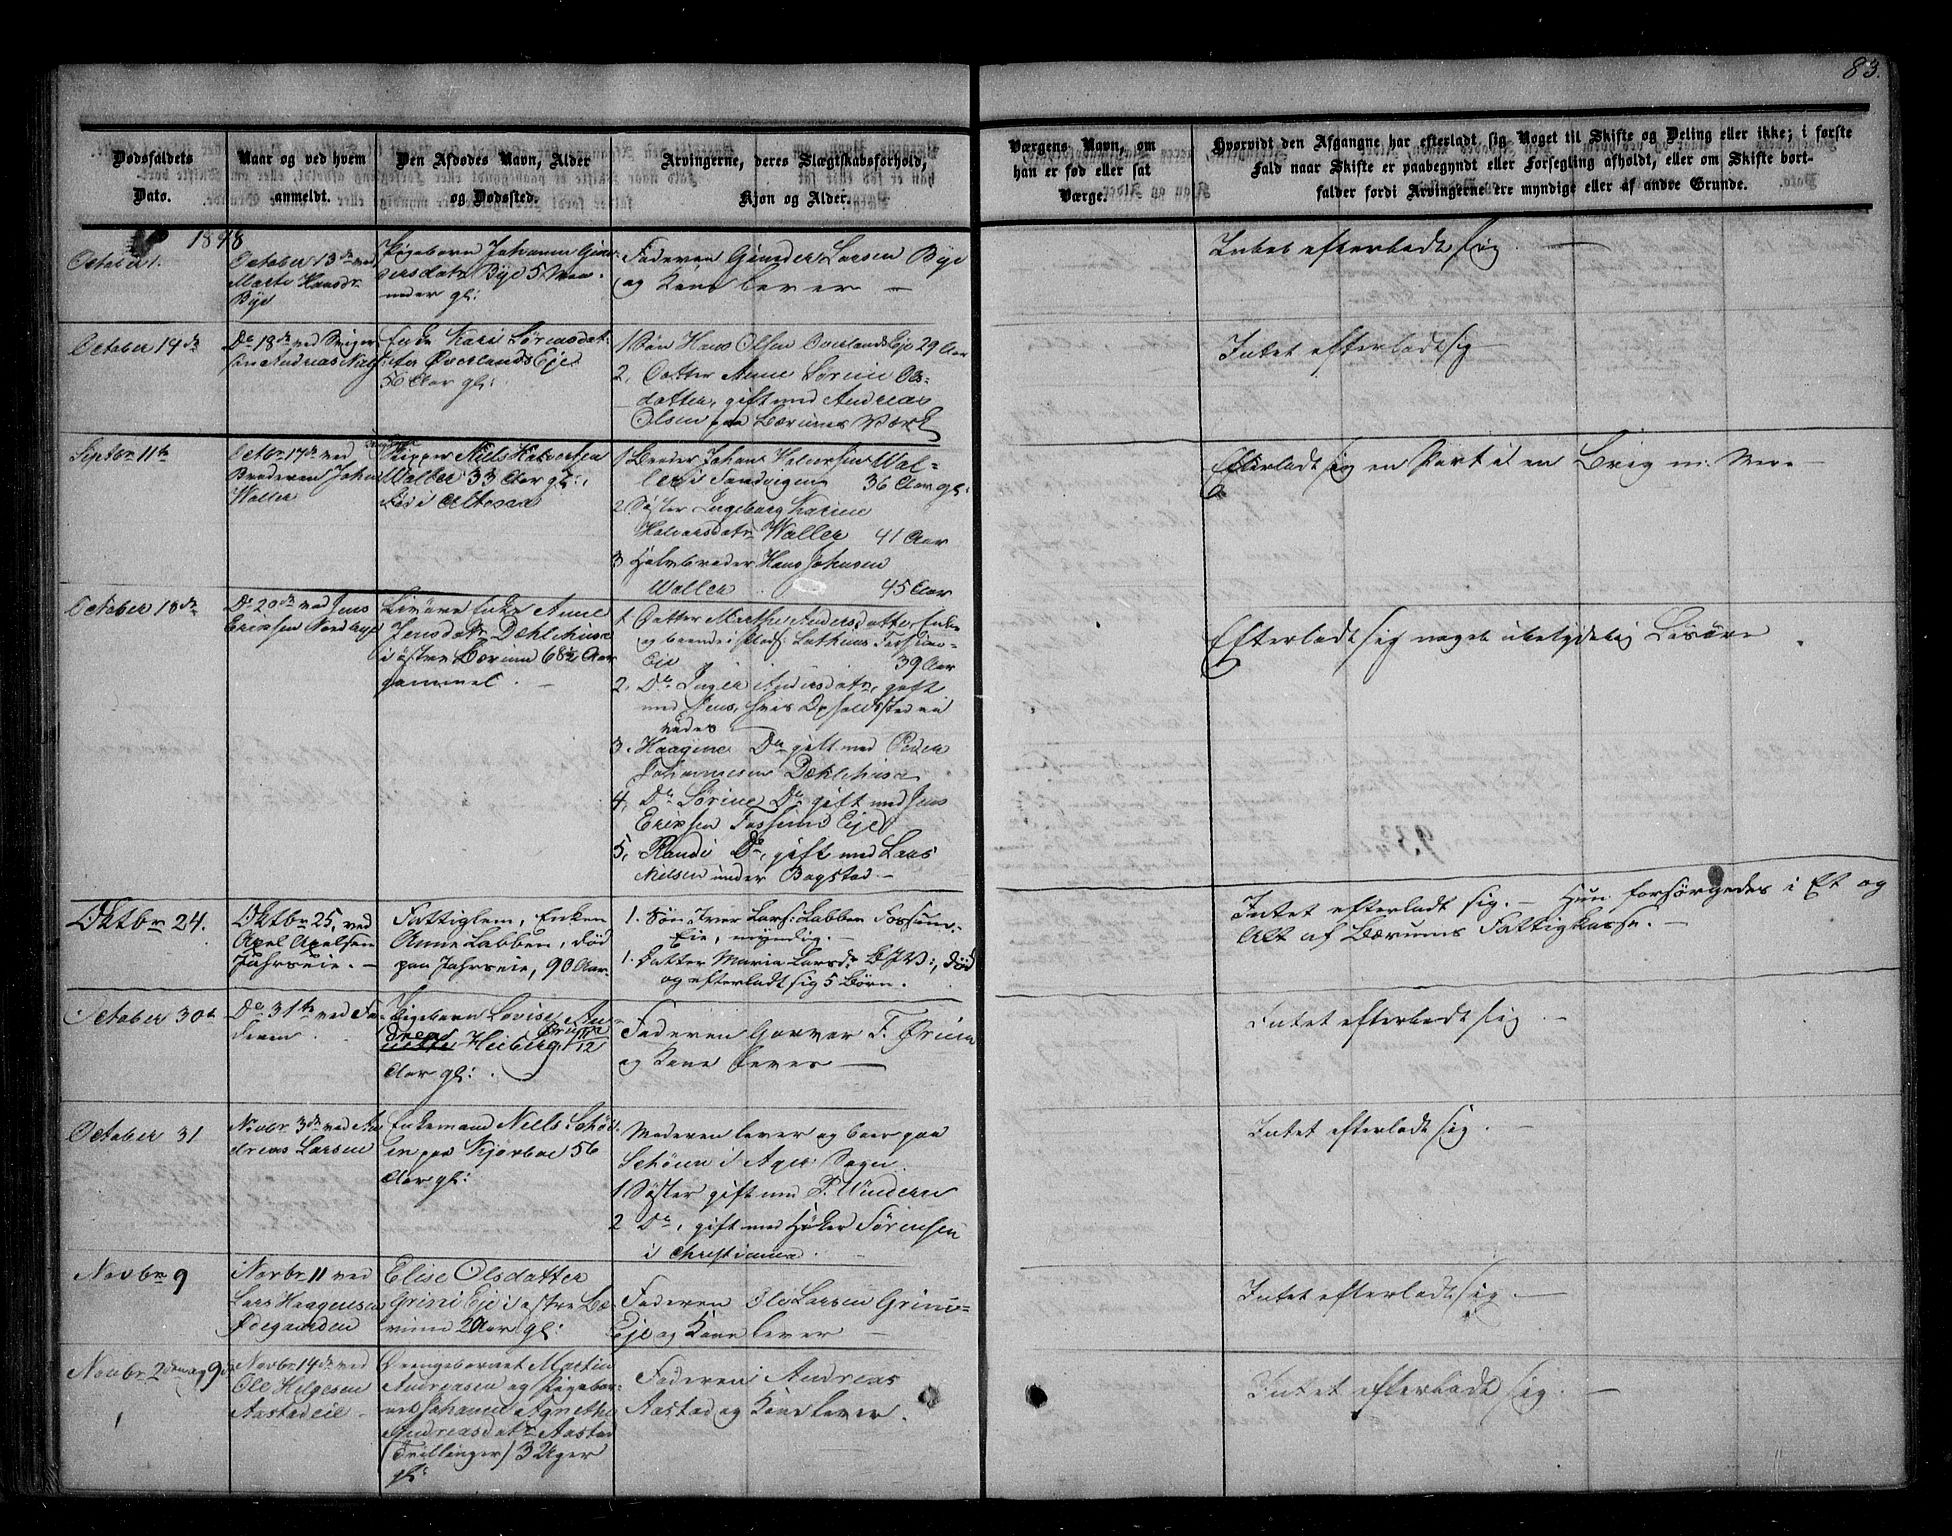 83.
Dødsfaldets
Dato.
Naar og ved hvem
anmeldt.
Den Afdødes Navn, Alder
og Dødssted.
Arvingerne, deres Slægtskabsforhold,
Kjøn og Alder.
Værgens Navn, om
han er fød eller sat
Værge.
Hvorvidt den Afgangne har efterladt sig Noget til Skifte og Deling eller ikke; i første
Fald naar Skifte er paabegyndt eller Forsegling afholdt, eller om Skifte bort-
falder fordi Arvingerne ere myndige eller af andre Grunde.
October 1.
October 13de ved
Marte Hansdr
Bye
Pigebarn Johanne Gun-
dersdatr Bye 5 Maa-
neder gl:
Faderen Gunder Larsen Bye
og Kone lever —
Intet efterladt sig. —
October 14de
Do 18de ved Sviger
søn Andreas
Enke Kari Sørensdat-
ter Øverlands Eje
56 Aar gl:
1 Søn Hans Olsen Øverlands Eje 29 Aar
2. Datter Anne Sørine Ols-
datter, gift med Andreas
Olsen paa Bærums Værk
Intet efterladt sig —
Septbr 11te
Octbr 17de ved
Broderen Johan
Waller
Skipper Niels Halvorsen
Waller 33 Aar gl:,
død i Altona
1 Broder Johan Halvorsen Wal-
ler i Sandvigen 36 Aar gl:
2 Søster Ingeborg Karine
Halvorsdatr Waller 41 Aar
3 Halvbroder Hans Johnsen
Waller 45 Aar
Efterladt sig en Part i en Brig m: Mere —
October 18de
Do 20de ved Jens
Eriksen Nordbye
Enke Anne
Jensdatr Dæhlehuse
i østre Bærum 68½ Aar
gammel. —
1. Datter Marthe Andersdatter Enke
og boende i Fossum-
Eje 39 Aar
2. Do Inger Andersdatr, gift
med Jens, hvis Opholdssted ei
vides —
3. Haagine Do gift med Peder
Johannesen Dæhlehuse
4. Do Sørine Do gift med Jens
Eriksen Fossums Eje
5. Randi Do, gift med Lars
Nielsen under Bogstad. —
Efterladt sig noget ubetydelig Løsøre
Oktbr 24.
Oktbr 25, ved
Axel Axelsen
Jahrseie. —
Fattiglem, Enken
Anne Labben, død
paa Jahrseie, 90 Aar.
1. Søn Iver Lars: Labben Fossum-
Eie, myndig. —
1. Datter Maria Larsdr, død
og efterladt sig 5 Børn.
Intet efterladt sig. — Hun forsørgedes i Et og
Alt af Bærums Fattigkasse. —
October 30te
Do 31te ved Fa-
deren.
Pigebarn Lovise An-
Heiberg Ørum 11/12
Aar gl:.
Faderen Garver F. Ørum
og Kone lever —
Intet efterladt sig. —
October 31
Novbr 3de ved An-
dreas Larsen
Enkemand Niels Schøi-
en paa Kjørboe 56
Aar gl:
Moderen lever og boer paa
Schøien i Ager Sogn.
1 Søster gift med P. Vindern
2 Do, gift med Høker Sørensen
i Christiania. —
Intet efterladt sig. —
Novbr 9
Novbr 11 ved
Lars Haagensen
Ødegaarden
Elise Olsdatter
Grini Eje i østre Bæ-
rum 2 Aar gl:
Faderen Ole Larsen Grini-
Eje og Kone lever —
Intet efterladt sig. —
Novbr 2den og 9de
Novbr 14de ved
Ole Helgesen
Aastadeie —
Drengebarnet Martin
Andreasen og Pigebar-
net Johanne Agnethe
Andreasdatr Aastad
(Trillinger) 3 Uger
gl:
Faderen Andreas
Aastad og Kone lever.
Intet efterladt sig. —